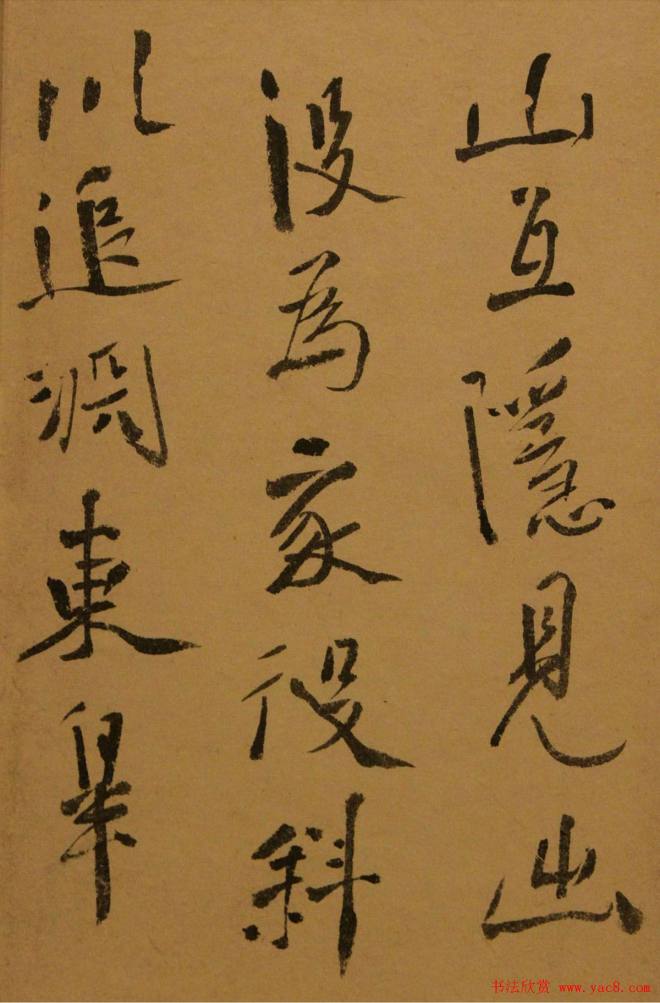 山互隱見出
没為家役斜
川追淵東皋
书法欣赏 www.yac8.com